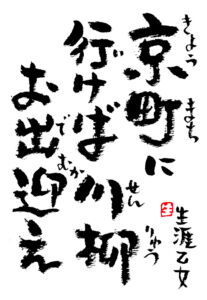 京町に
きょうまち
行けば川柳
いせんりゅう
お出迎え
でむか
生涯乙女